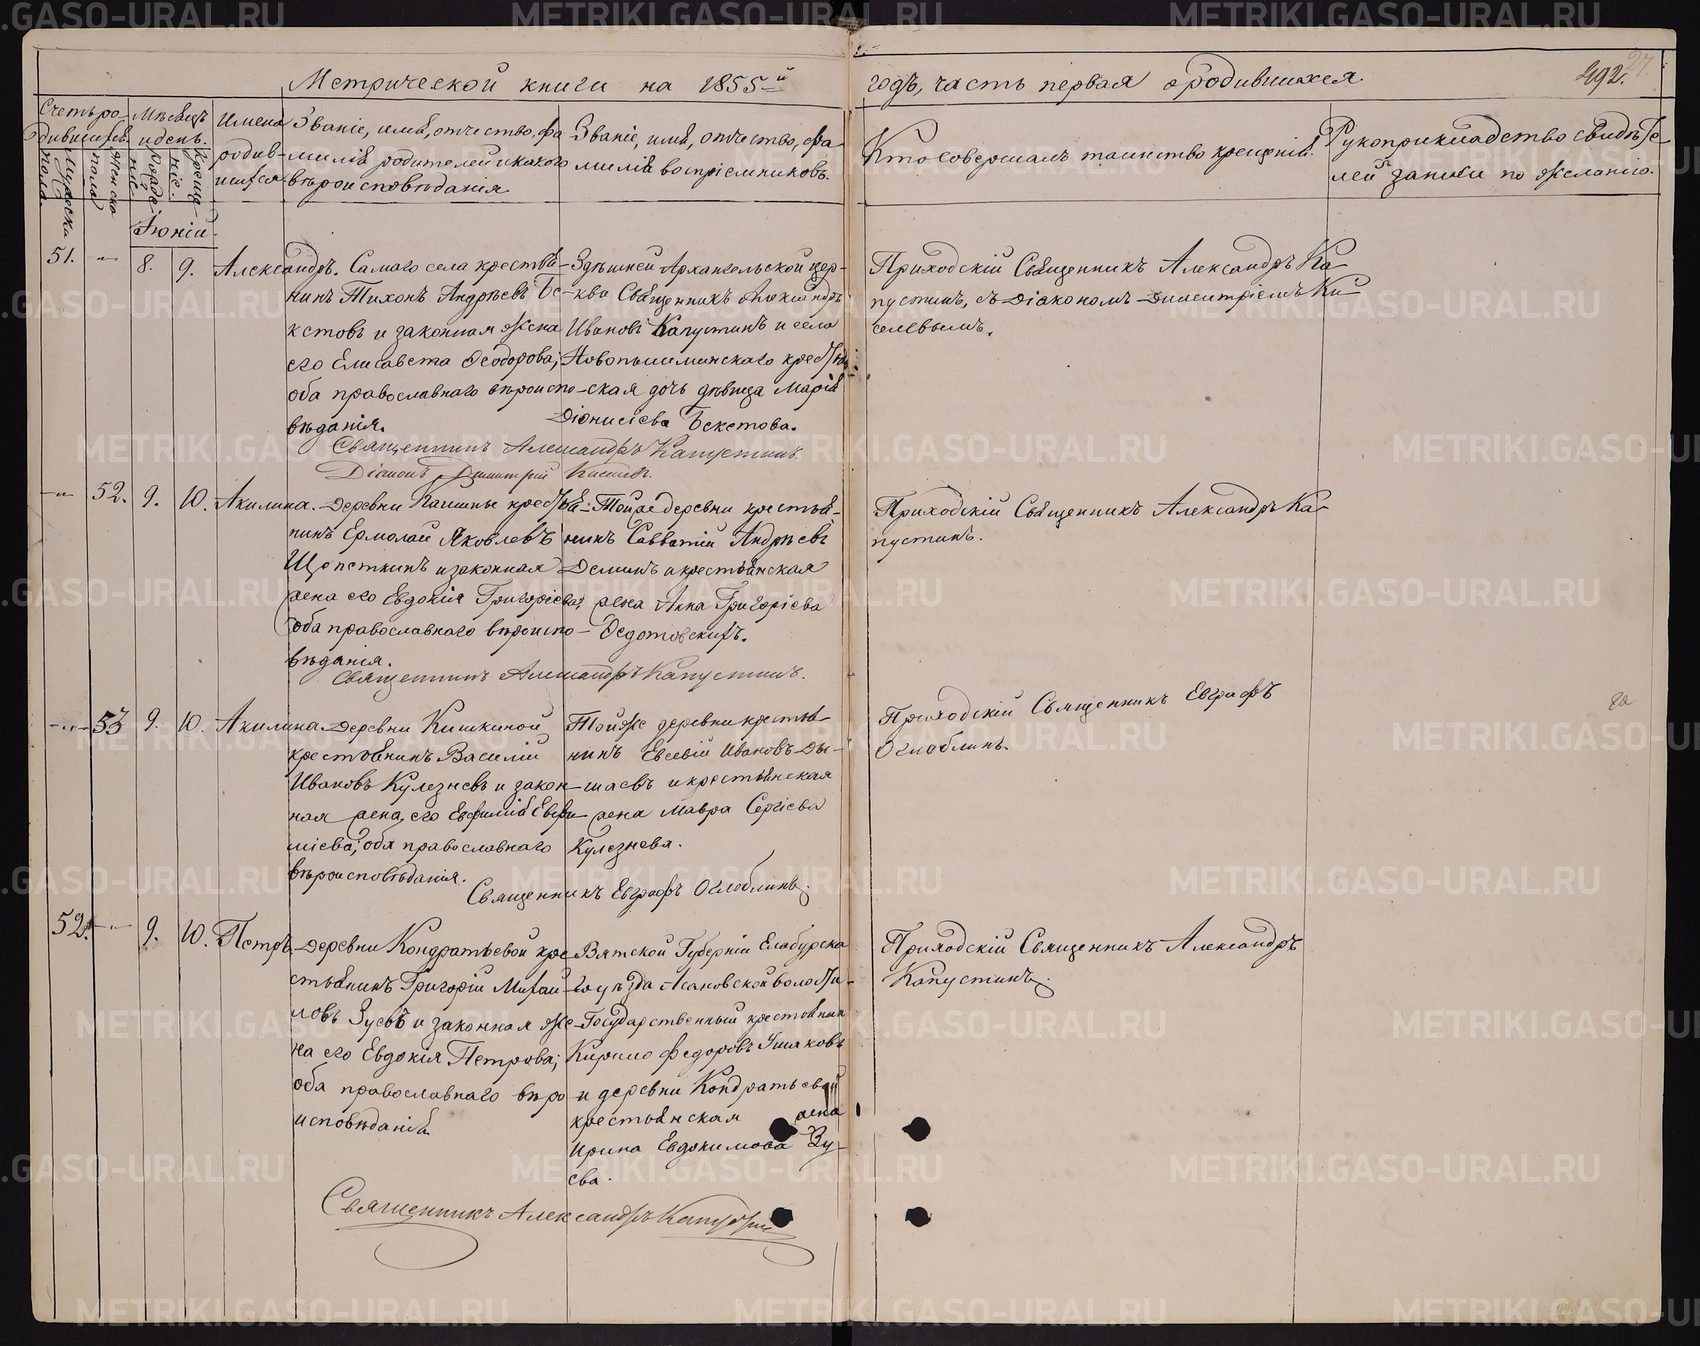 Метрической книги на 1855й годъ, часть первая о родившихся.
492.
27.
Счетъ ро-
дившихся.
Мужеска
пола.
Женска
пола
Мѣсяцъ
и день.
рожде-
нiе.
Креще-
нiе.
Имена
родив-
шихся
Званiе, имя, отчество, фа-
милiя родителей и какого
вѣроисповѣданiя.
Званiе, имя, отчество, фа-
милiя воспрiемниковъ.
Кто совершалъ таинство крещенiя.
Рукоприкладство свидѣте-
лей записи по желанiю.
Iюнiя.
51. - 8. 9. Александръ.
Самаго села крестья-
нинъ Тихонъ Андрѣевъ Бе-
кетовъ и законная жена
его Елисавета Ѳеодорова;
оба православнаго вѣроиспо-
вѣданiя.
Здѣшней Архангельской цер-
кви Священникъ Александръ
Ивановъ Капустинъ и села
Новопышминскаго крестьян-
ская дочь дѣвица Марiя
Дiонисiева Бекетова.
Приходскiй Священникъ Александръ Ка-
пустинъ, съ Дiакономъ Димитрiемъ Ки-
селевымъ.
Священникъ Александръ Капустинъ.
Дiаконъ Димитрiй Киселевъ.
- 52. 9. 10. Акилина.
Деревни Кашины крестья-
нинъ Ермолай Яковлевъ
Щопеткинъ и законная
жена его Евдокiя Григорiева;
оба православнаго вѣроиспо-
вѣданiя.
Той же деревни крестья-
нинъ Савватiй Андрѣевъ
Деминъ и крестьянская
жена Анна Григорiева
Ѳедотовскихъ.
Приходскiй Священникъ Александръ Ка-
пустинъ.
Священникъ Александръ Капустинъ.
- 53 9. 10. Акилина.
Деревни Кишкиной
крестьянинъ Василiй
Ивановъ Кулезневъ и закон-
ная жена его Евфимiя Евфи-
мiева; оба православнаго
вѣроисповѣданiя.
Той же деревни крестья-
нинъ Евсевiй Ивановъ Ды-
шаевъ и крестьянская
жена Мавра Сергiева
Кулезнева.
Приходскiй Священникъ Евграфъ
Оглоблинъ.
Священникъ Евграфъ Оглоблинъ.
52. - 9. 10. Петръ.
Деревни Кондратьевой кре-
стьянинъ Григорiй Михай-
ловъ Зуевъ и законная же-
на его Евдокiя Петрова;
оба православнаго вѣро-
исповѣданiя.
Вятской Губернiи Елабужска-
го уѣзда Асановской волости
Государственный крестьянин
Кирило Федоровъ Ушаковъ
и деревни Кондратьевой
крестьянская жена
Ирина Евдокимова Зу-
ева.
Приходскiй Священникъ Александръ
Капустинъ.
Священникъ Александръ Капустинъ
METRIKI.GASO-URAL.RU